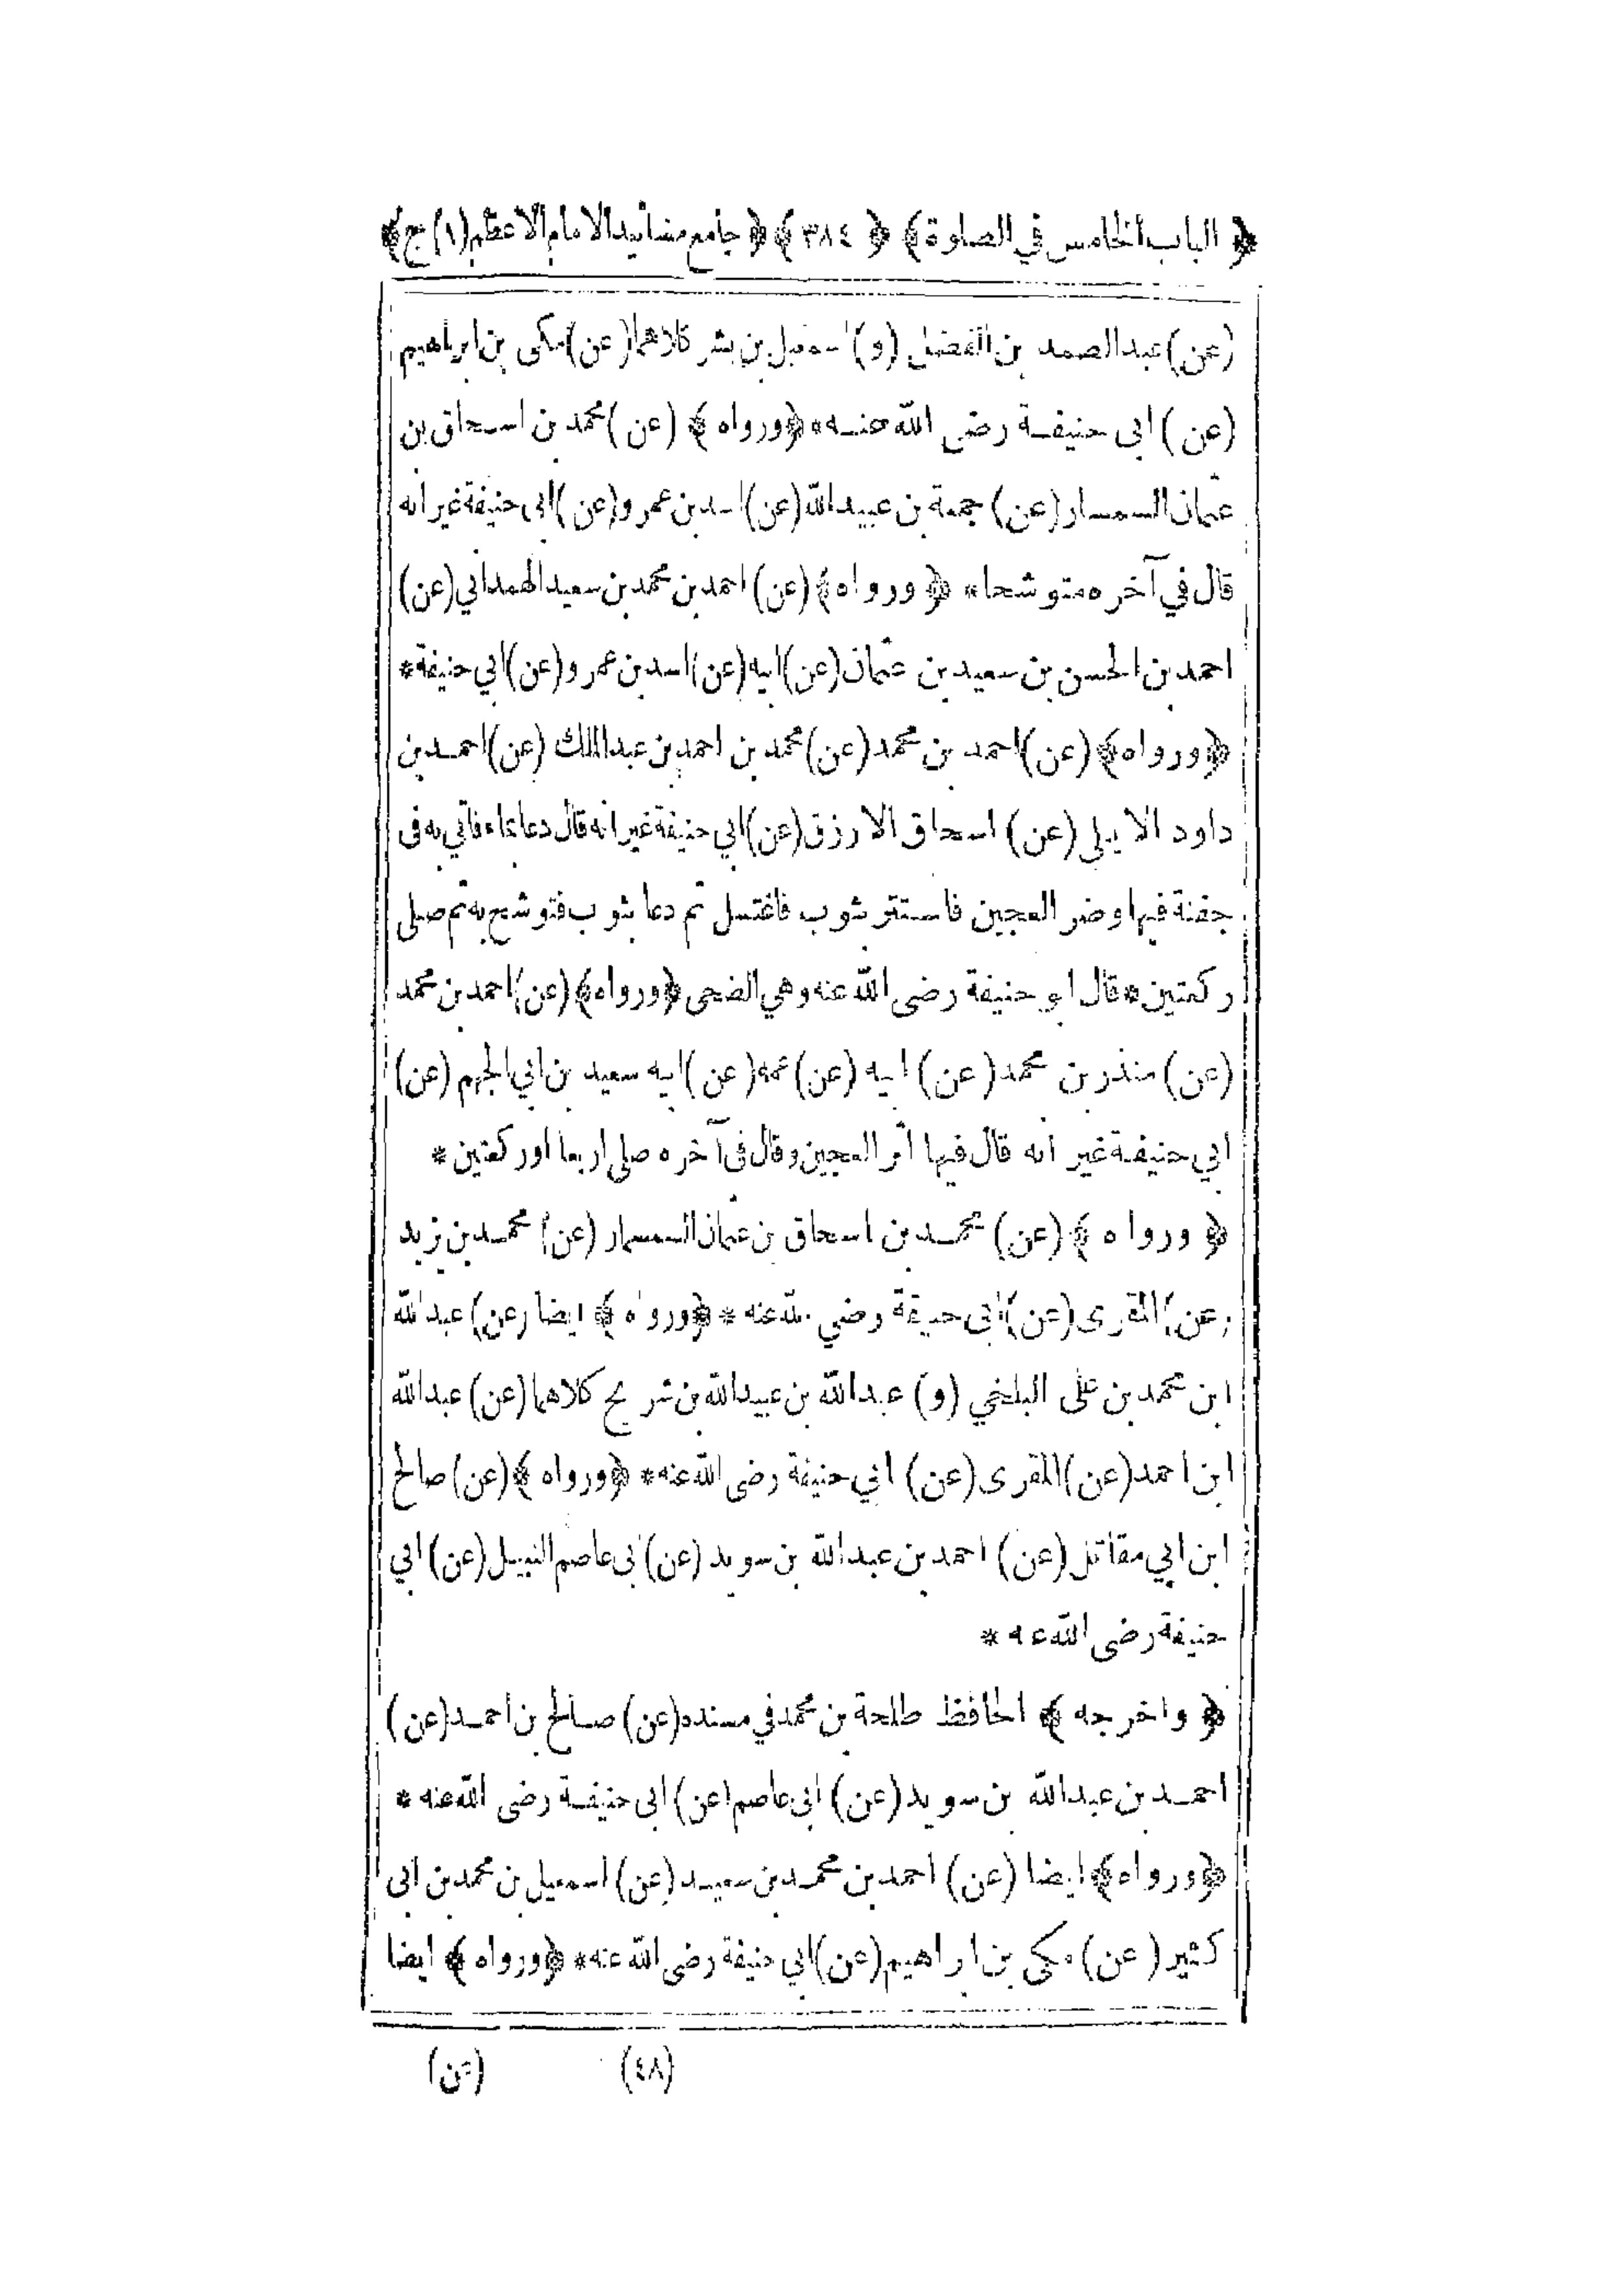 ﴿ الباب الخامس في الصلوة ﴾ ﴿ ٣٨٤ ﴾ ﴿ جامع مسانيد الامام الاعظم (١) ج ﴾
(عن) عبد الصمد بن الفضل (و) اسمعيل بن بشر كلاهما (عن) مكى بن ابراهيم
(عن) ابى حنيفة رضى الله عنه * ﴿ ورواه ﴾ (عن) محمد بن اسحاق بن
عثمان السمسار (عن) جمعة بن عبيد الله (عن) اسد بن عمرو (عن) ابى حنيفة غير انه
قال في آخره متوشحا * ﴿ ورواه ﴾ (عن) احمد بن محمد بن سعيد الهمداني (عن)
احمد بن الحسن بن سعيد بن عثمان (عن) ابيه (عن) اسد بن عمرو (عن) ابي حنيفة *
﴿ ورواه ﴾ (عن) احمد بن محمد (عن) محمد بن احمد بن عبد الملك (عن) احمد بن
داود الايلى (عن) اسحاق الازرق (عن) ابي حنيفة غير انه قال دعا بماء فاتي به فى
جفنة فيها وضر العجين فاستتر بثوب فاغتسل ثم دعا بثوب فتوشح به ثم صلى
ركعتين * قال ابو حنيفة رضى الله عنه وهي الضحى ﴿ ورواه ﴾ (عن) احمد بن محمد
(عن) منذر بن محمد (عن) ابيه (عن) عمه (عن) ابيه سعيد بن ابي الجهم (عن)
ابي حنيفة غير انه قال فيها اثر العجين وقال فى آخره صلى اربعا اوركعتين *
﴿ ورواه ﴾ (عن) محمد بن اسحاق بن عثمان السمسار (عن) محمد بن يزيد
(عن) المقرى (عن) ابى حنيفة رضي الله عنه * ﴿ ورواه ﴾ ايضا (عن) عبد الله
ابن محمد بن على البلخي (و) عبد الله بن عبيد الله بن شريح كلاهما (عن) عبد الله
ابن احمد (عن) المقرى (عن) ابي حنيفة رضى الله عنه * ﴿ ورواه ﴾ (عن) صالح
ابن ابي مقاتل (عن) احمد بن عبد الله بن سويد (عن) ابى عاصم النبيل (عن) ابي
حنيفة رضى الله عنه *
﴿ واخرجه ﴾ الحافظ طلحة بن محمد في مسنده (عن) صالح بن احمد (عن)
احمد بن عبد الله بن سويد (عن) ابى عاصم (عن) ابى حنيفة رضى الله عنه *
﴿ ورواه ﴾ ايضا (عن) احمد بن محمد بن سعيد (عن) اسمعيل بن محمد بن ابى
كثير (عن) مكى بن ابراهيم (عن) ابي حنيفة رضى الله عنه * ﴿ ورواه ﴾ ايضا
(٤٨) (عن)